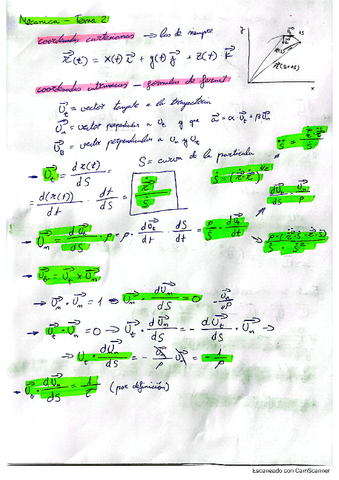 Mecánica - Tema 2
coordenadas cartesianas → las de siempre
r⃗(t) = x(t) i⃗ + y(t) j⃗ + z(t) · k⃗
coordenadas intrínsecas - fórmulas de frenet
U⃗t = vector tangente a la trayectoria
U⃗n = vector perpendicular a Ut y que a⃗ = α·U⃗t + βU⃗n
U⃗B = vector perpendicular a Un y Ut
S = curva de la partícula
→ U⃗t = d r⃗(t) / dS =
= d(r⃗(t)) / dt · dt / dS =
→ U⃗n = dU⃗t / dS · ρ = ρ · dU⃗t / dt · dt / dS = ρ / Ṡ · dU⃗t / dt
→ U⃗B = U⃗t × U⃗n
→ U⃗n · U⃗n = 1 → U⃗n · dU⃗n / dS = 0
→ U⃗t · U⃗n = 0 → U⃗t · dU⃗n / dS = - dU⃗t / dS · U⃗n ⇒
⇒ U⃗t · dU⃗n / dS = - U⃗n / ρ · U⃗n = - 1 / ρ
→ U⃗B · dU⃗n / dS = 1 / τ (por definición)
Escaneado con CamScanner